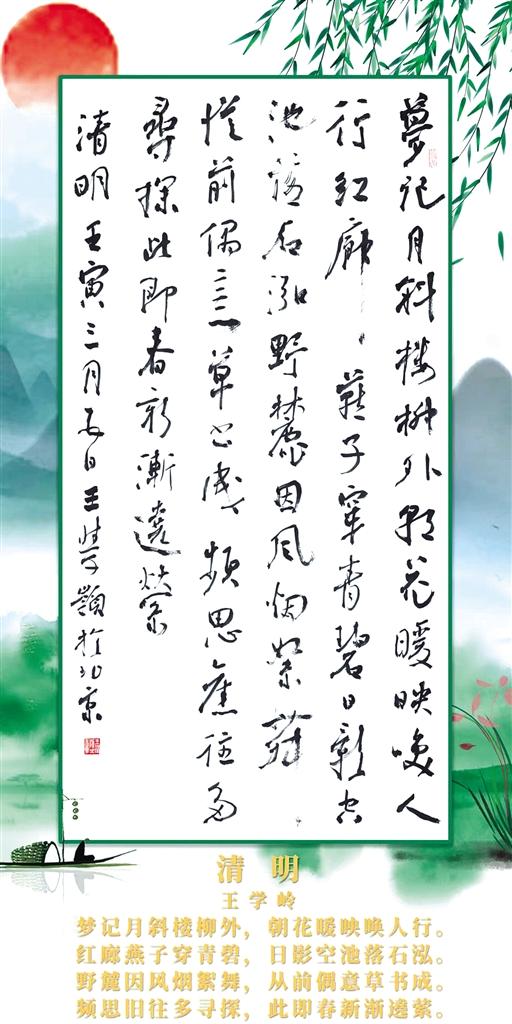 夢记月斜楼柳外朝花暖映唤人
行红廊燕子穿青碧日影空
池落石泓野麓因风烟絮舞
従前偶意草书成频思舊往多
尋探此即春新漸遶萦
清明 壬寅三月五日王學嶺於北京
清 明
王学岭
梦记月斜楼柳外，朝花暖映唤人行。
红廊燕子穿青碧，日影空池落石泓。
野麓因风烟絮舞，从前偶意草书成。
频思旧往多寻探，此即春新渐遶萦。